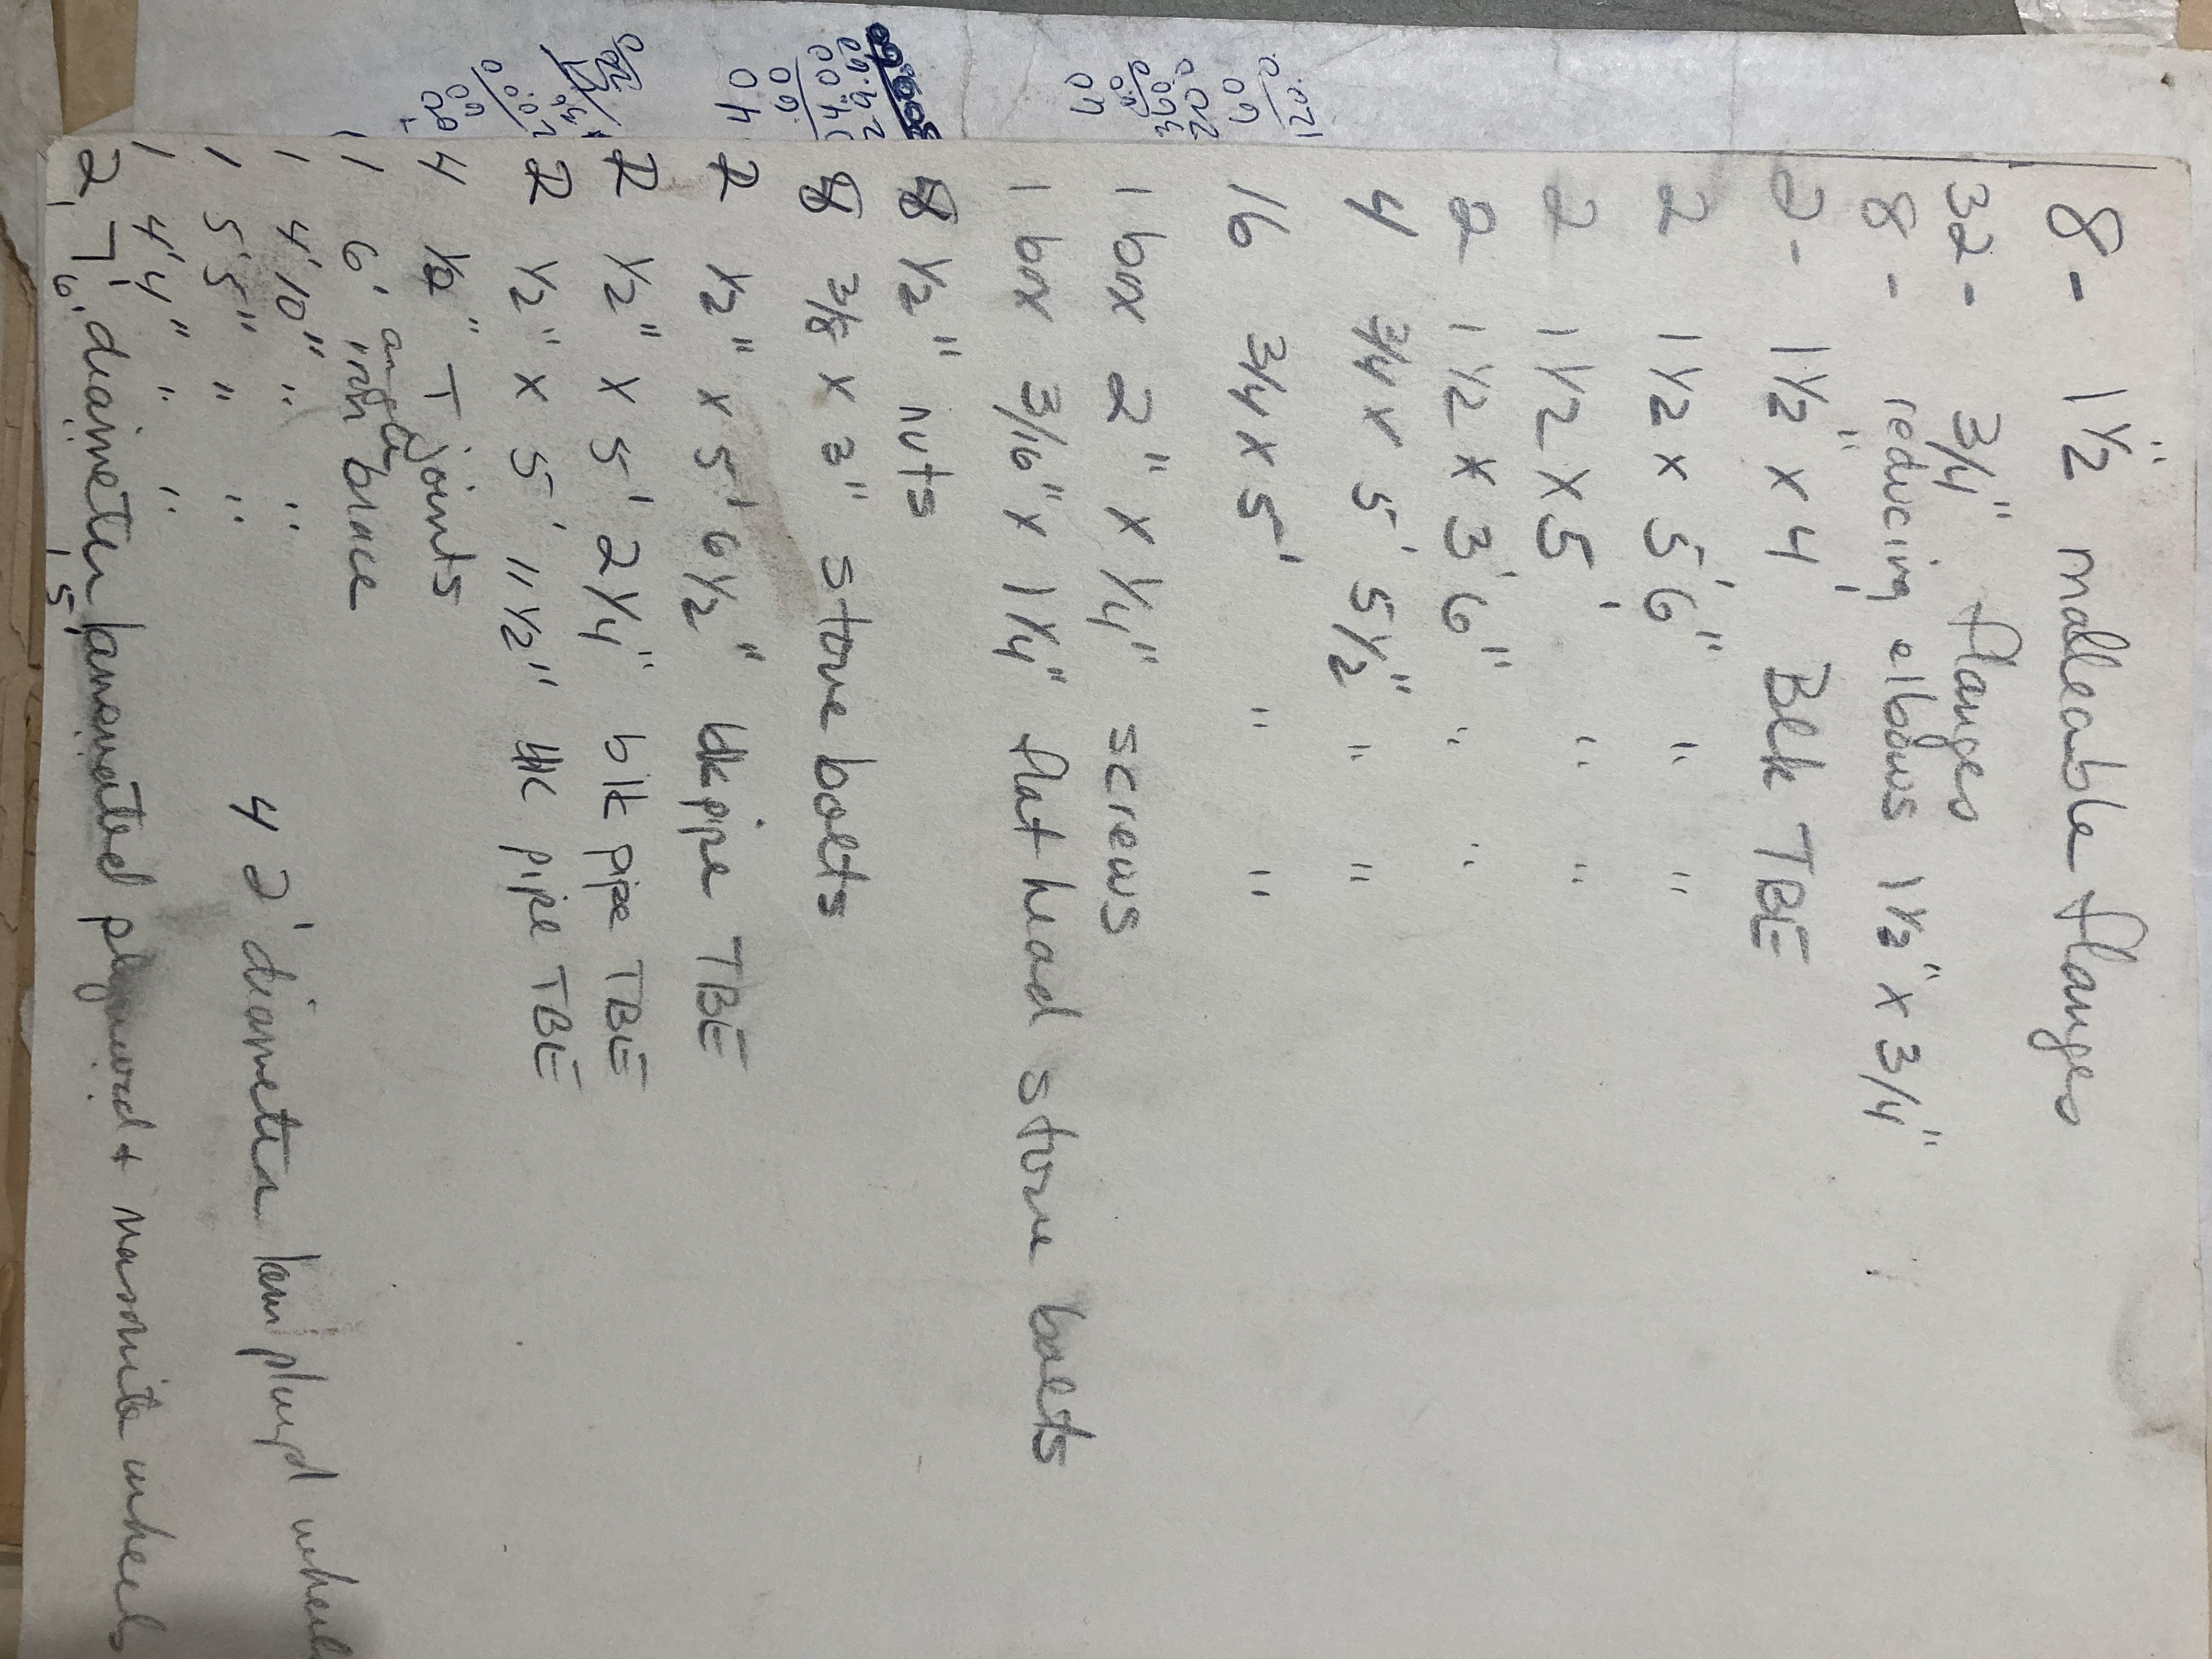 8 - 1 1/2" malleable flanges
32 - 3/4" flanges
8 - reducing elbows 1 1/2" x 3/4"
2 - 1 1/2" x 4' Blk TBE
2 1 1/2 x 5' 6" " "
2 1 1/2 x 5' " "
2 1 1/2 x 3' 6" " "
4 3/4 x 5' 5 1/2" " "
16 3/4 x 5' " "
1 box 2" x 1/4" screws
1 box 3/16" x 1 1/4" flat head stove bolts
8 1/2" nuts
8 3/8 x 3" stove bolts
2 1/2" x 5' 6 1/2" blk pipe TBE
2 1/2" x 5' 2 1/4" blk pipe TBE
2 1/2" x 5' 11 1/2" blk pipe TBE
4 1/2" T joints
1 6' angle iron brace
1 4' 10" " "
1 5' 5" " "
1 4' 4" " "
4 2' diameter lam plywd wheels
2 7' diameter lamonated plywood + masonite wheels
40
60
120.
40
60